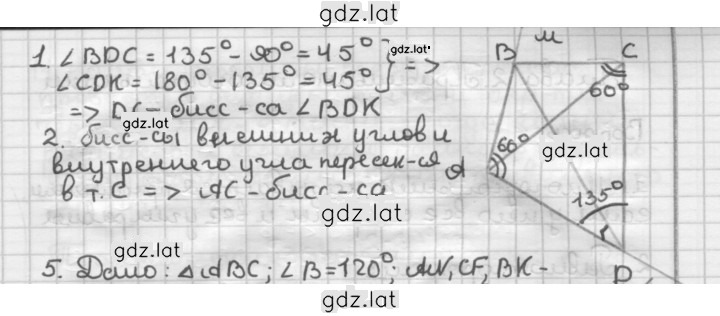 gdz.lat
1. ∠BDC = 135° - 90° = 45° } gdz.lat =>
∠CDK = 180° - 135° = 45°
=> DC - бисс-са ∠BDK
gdz.lat
2. бисс-сы внешних углов и
внутреннего угла пересек-ся
в т. C => AC - бисс-са
gdz.lat
gdz.lat
5. Дано: △ABC; ∠B = 120°; AN, CF, BK -
gdz.lat
M
B
C
60°
60°
gdz.lat
A
135°
D